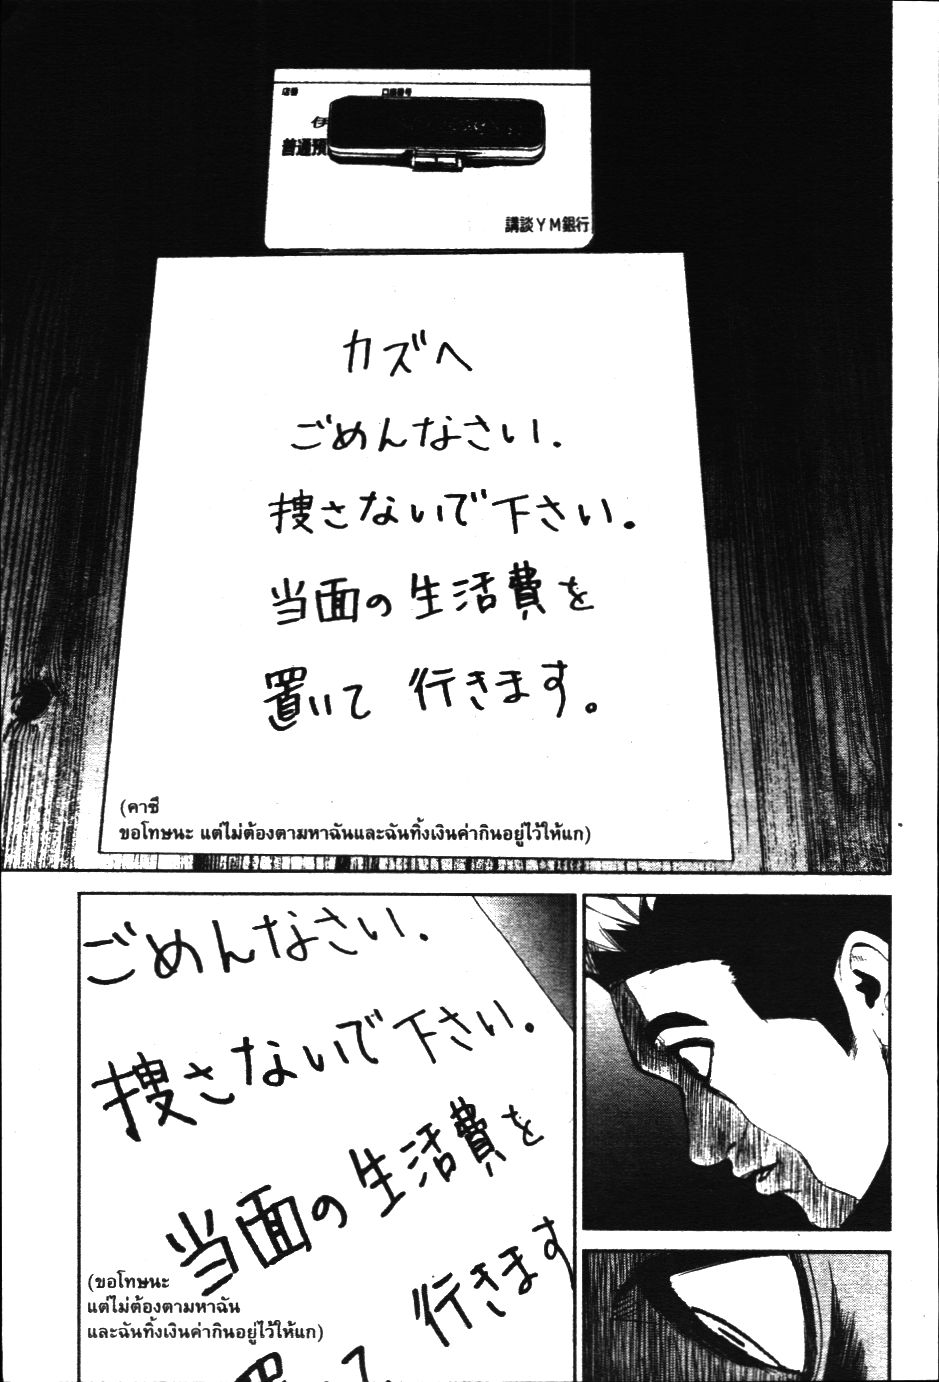 店番 口座番号
普通預
講談YM銀行
カズへ
ごめんなさい.
捜さないで下さい。
当面の生活費を
置いて 行きます。
(คาซึ
ขอโทษนะ แต่ไม่ต้องตามหาฉันและฉันทิ้งเงินค่ากินอยู่ไว้ให้แก)
ごめんなさい.
捜さないで下さい.
当面の生活費を
行きます
(ขอโทษนะ
แต่ไม่ต้องตามหาฉัน
และฉันทิ้งเงินค่ากินอยู่ไว้ให้แก)